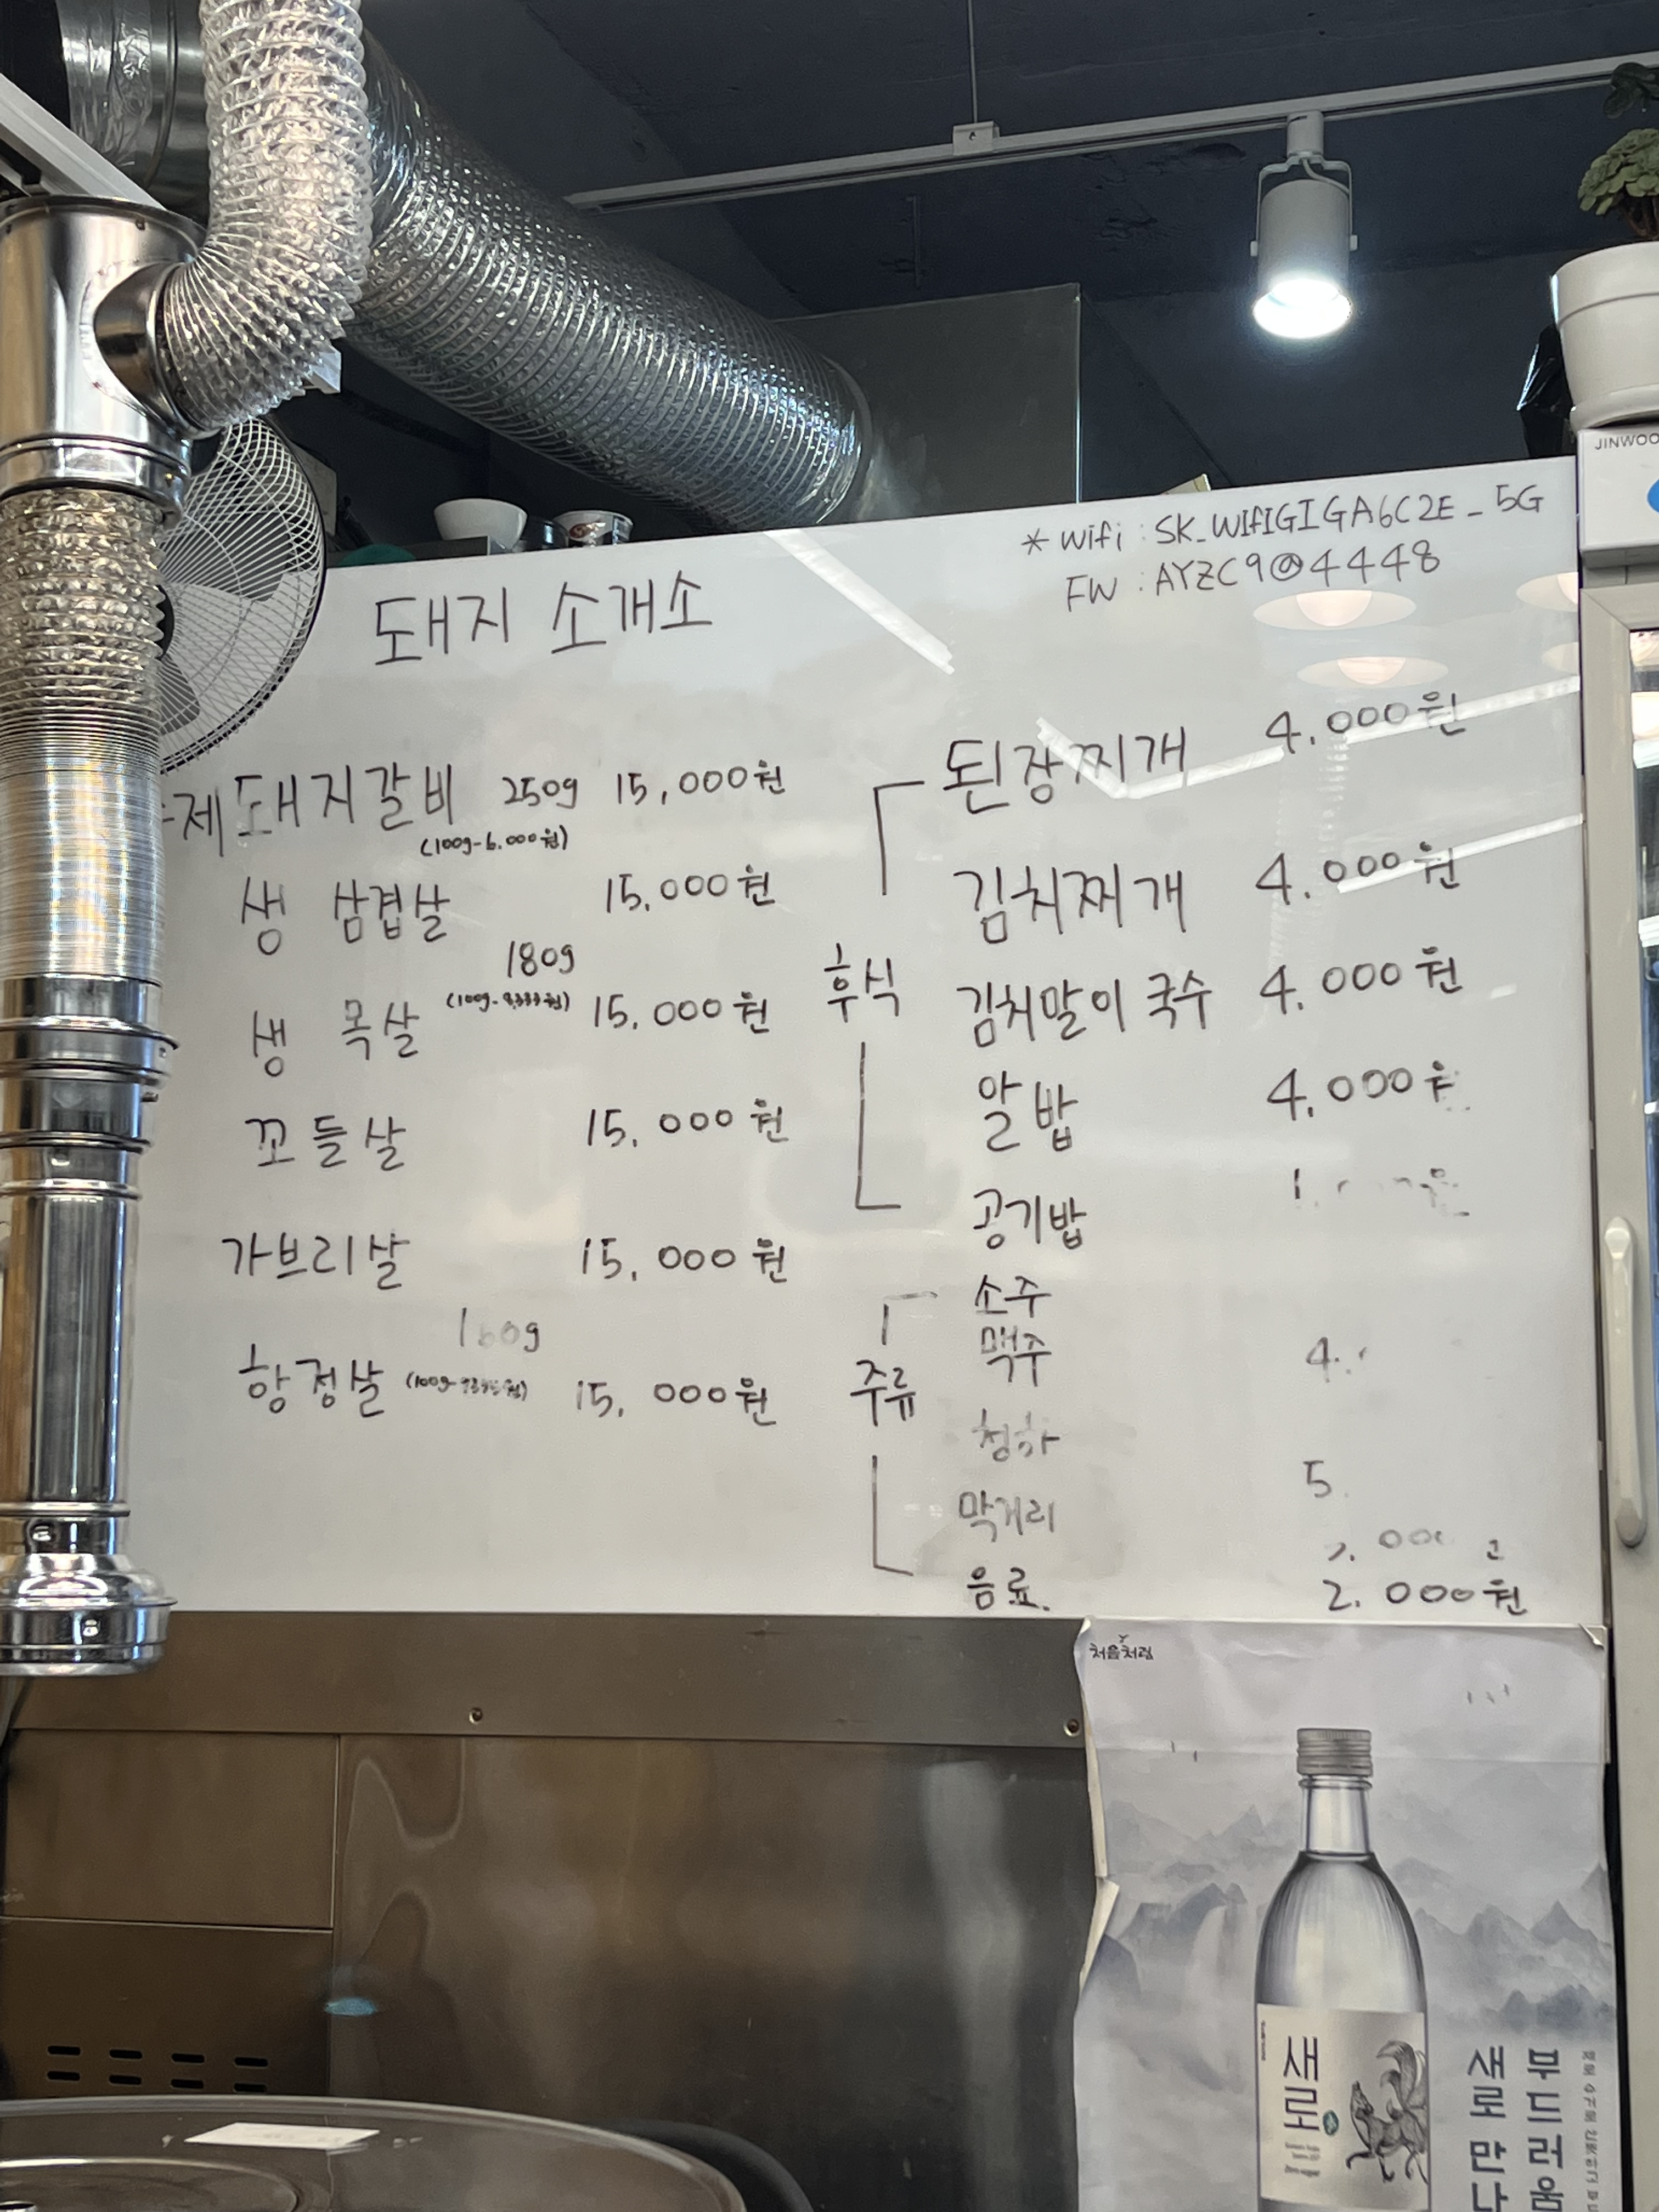 * Wifi : SK_WIFIGIGA6C2E_5G
FW : AYZC9@4448
JINWOO
돼지 소개소
제돼지갈비 250g 15,000원
(100g-6.000원)
생 삼겹살 15.000원
180g
생 목살 15.000원
꼬들살 15.000원
가브리살 15.000원
항정살 15.000원
후식
된장찌개 4.000원
김치찌개 4.000원
김치말이 국수 4.000원
알밥 4.000
공기밥
주류
소주
맥주
청하
막거리
음료. 2.000원
처음처럼
새로
부드러움
새로 만나